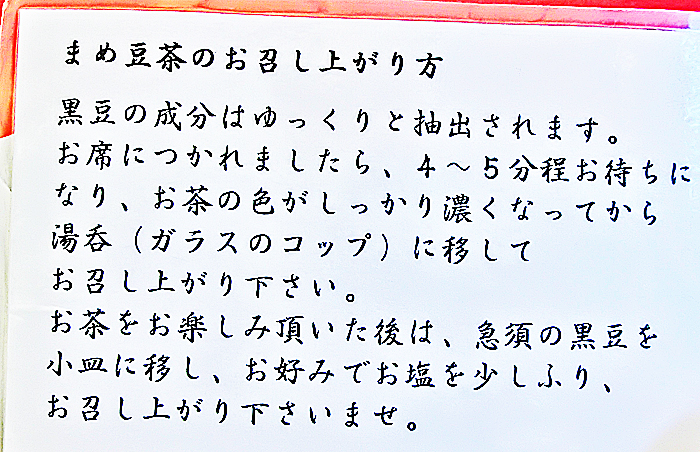 まめ豆茶のお召し上がり方
黒豆の成分はゆっくりと抽出されます。
お席につかれましたら、4～5分程お待ちに
なり、お茶の色がしっかり濃くなってから
湯呑（ガラスのコップ）に移して
お召し上がり下さい。
お茶をお楽しみ頂いた後は、急須の黒豆を
小皿に移し、お好みでお塩を少しふり、
お召し上がり下さいませ。